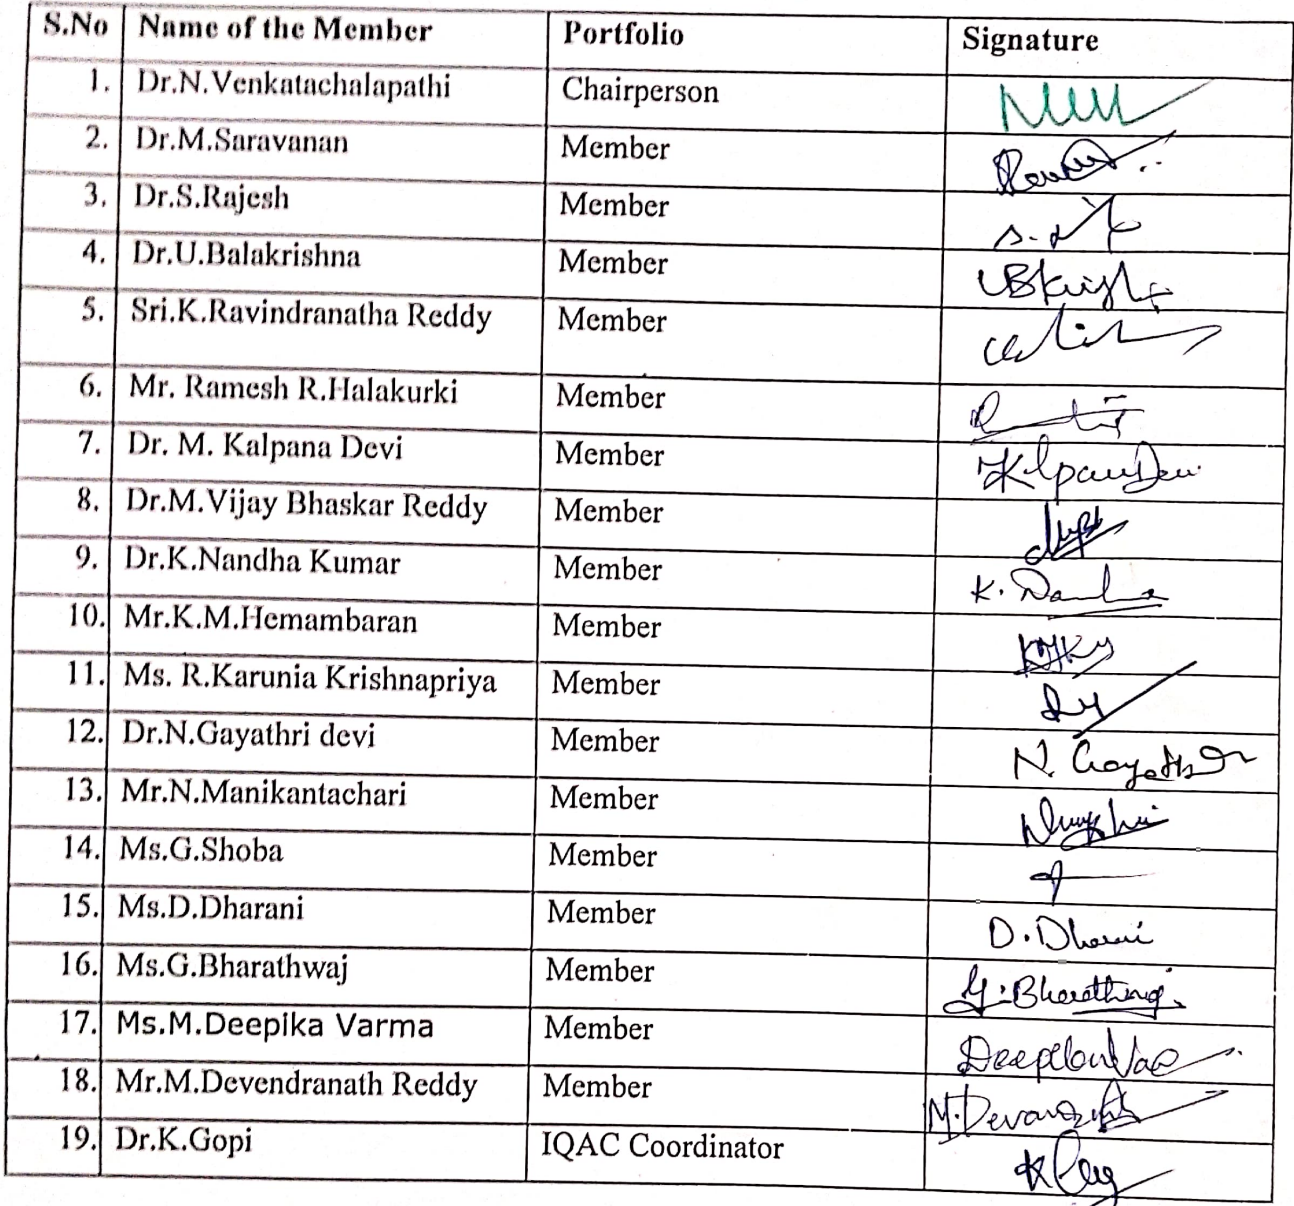 S.No Name of the Member Portfolio Signature
1. Dr.N.Venkatachalapathi Chairperson
2. Dr.M.Saravanan Member
3. Dr.S.Rajesh Member
4. Dr.U.Balakrishna Member
5. Sri.K.Ravindranatha Reddy Member
6. Mr. Ramesh R.Halakurki Member
7. Dr. M. Kalpana Devi Member
8. Dr.M.Vijay Bhaskar Reddy Member
9. Dr.K.Nandha Kumar Member
10. Mr.K.M.Hemambaran Member
11. Ms. R.Karunia Krishnapriya Member
12. Dr.N.Gayathri devi Member
13. Mr.N.Manikantachari Member
14. Ms.G.Shoba Member
15. Ms.D.Dharani Member
16. Ms.G.Bharathwaj Member
17. Ms.M.Deepika Varma Member
18. Mr.M.Devendranath Reddy Member
19. Dr.K.Gopi IQAC Coordinator